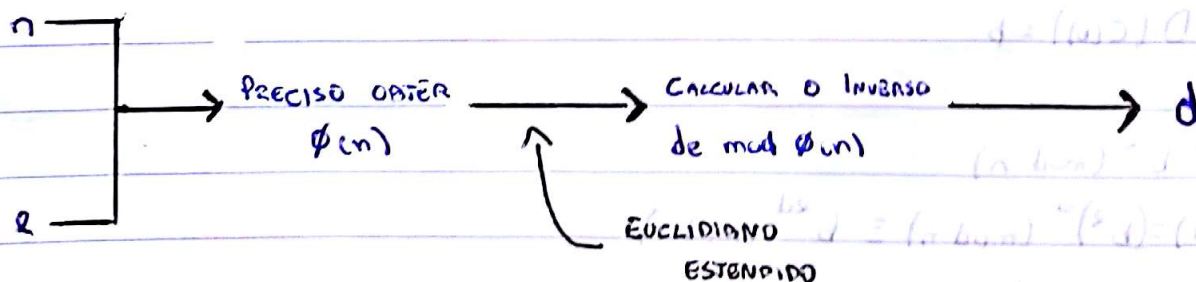 n
PRECISO OBTER
φ(n)
CALCULAR O INVERSO
de mod φ(n)
d
e
EUCLIDIANO
ESTENDIDO